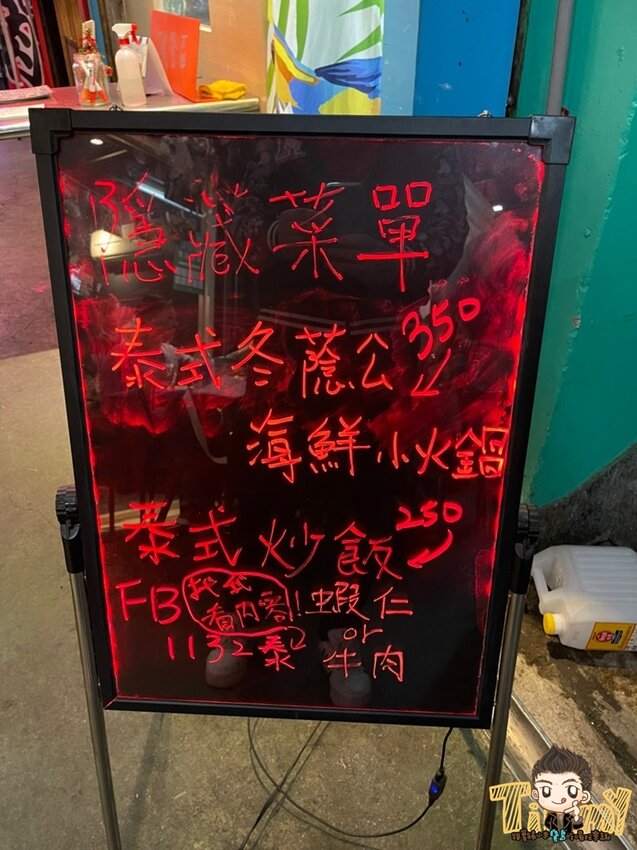 隱藏菜單
泰式冬蔭公350
海鮮小火鍋
泰式炒飯250
FB
看內容!
蝦仁
or
牛肉
1132泰
Tiny